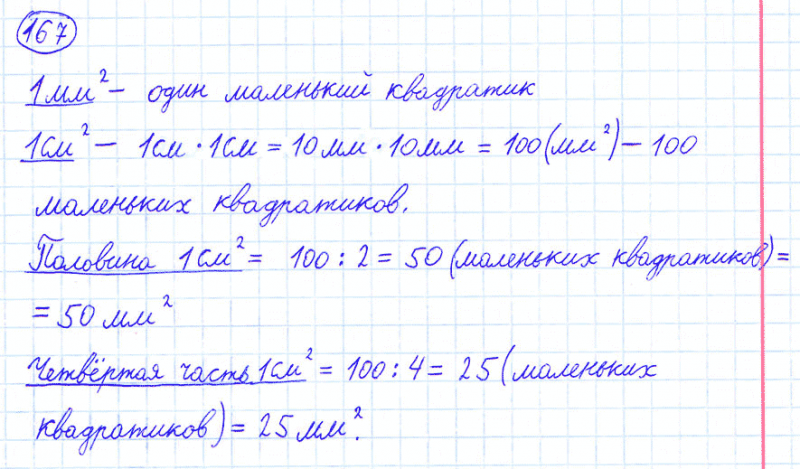 167
1мм² - один маленький квадратик
1см² - 1см · 1см = 10мм · 10мм = 100(мм²) - 100
маленьких квадратиков.
Половина 1см² = 100 : 2 = 50 (маленьких квадратиков) =
= 50 мм²
Четвёртая часть 1см² = 100 : 4 = 25 (маленьких
квадратиков) = 25 мм².